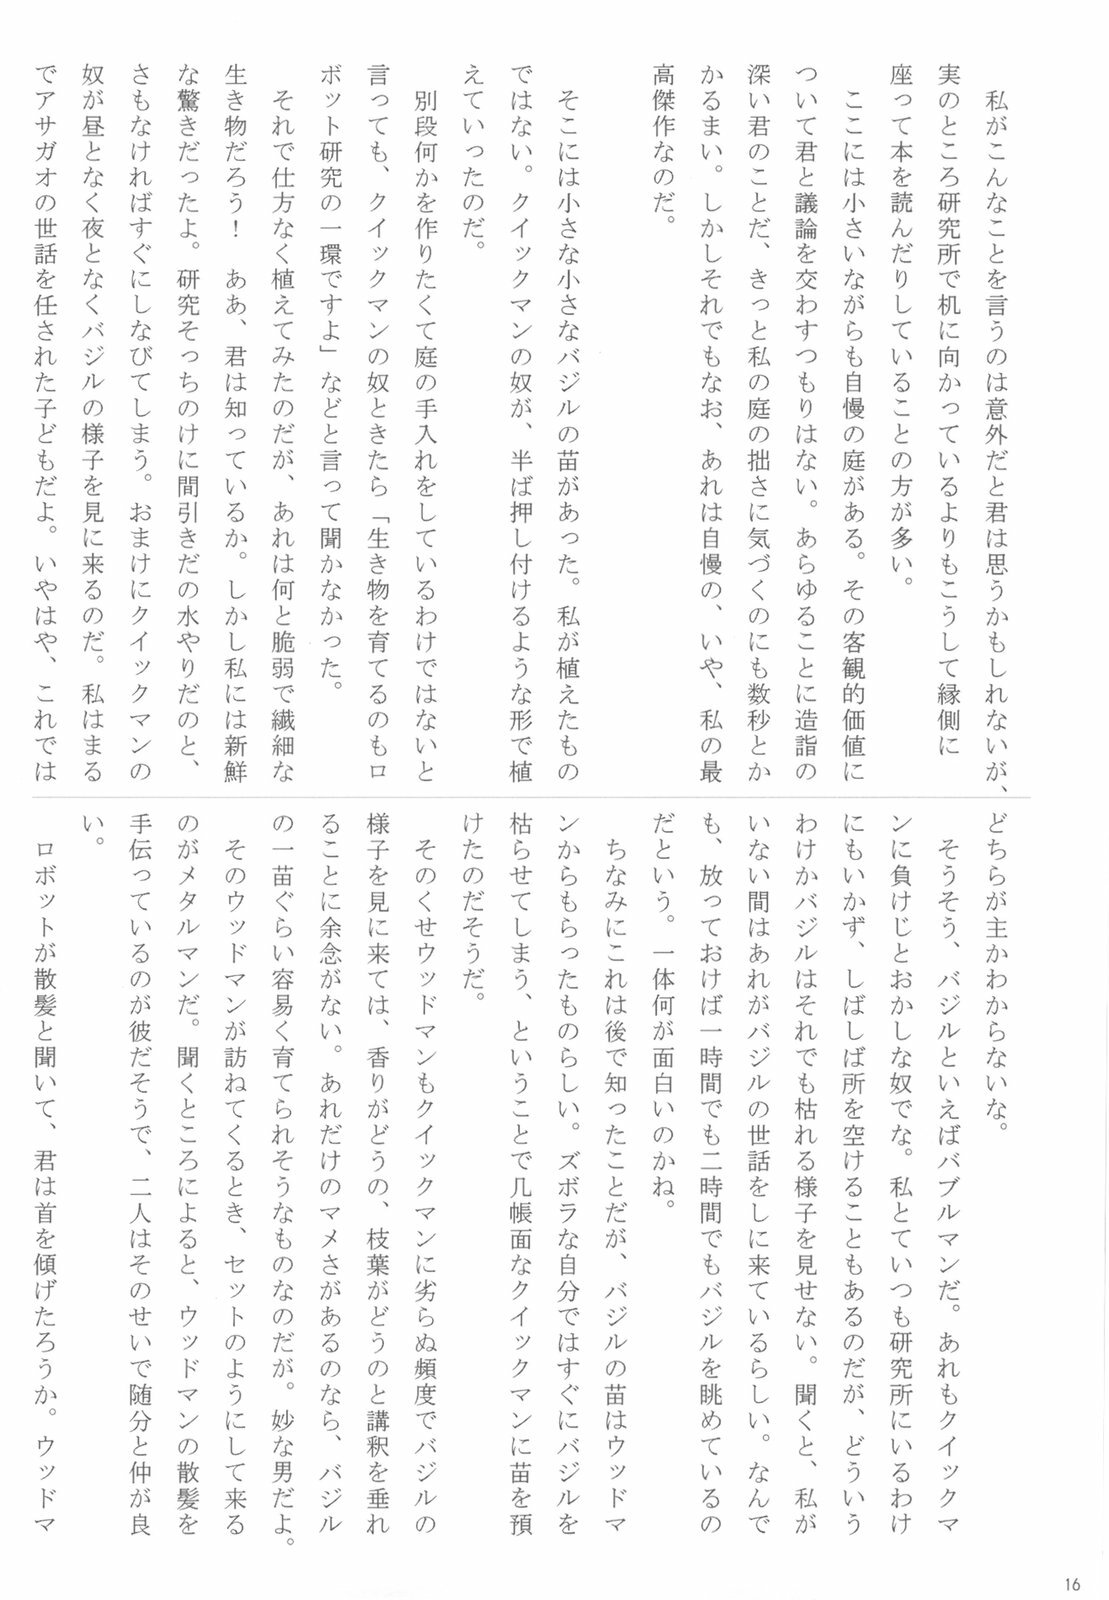 私がこんなことを言うのは意外だと君は思うかもしれないが、
実のところ研究所で机に向かっているよりもこうして縁側に
座って本を読んだりしていることの方が多い。
ここには小さいながらも自慢の庭がある。その客観的価値に
ついて君と議論を交わすつもりはない。あらゆることに造詣の
深い君のことだ、きっと私の庭の拙さに気づくのにも数秒とか
かるまい。しかしそれでもなお、あれは自慢の、いや、私の最
高傑作なのだ。
そこには小さな小さなバジルの苗があった。私が植えたもの
ではない。クイックマンの奴が、半ば押し付けるような形で植
えていったのだ。
別段何かを作りたくて庭の手入れをしているわけではないと
言っても、クイックマンの奴ときたら「生き物を育てるのもロ
ボット研究の一環ですよ」などと言って聞かなかった。
それで仕方なく植えてみたのだが、あれは何と脆弱で繊細な
生き物だろう！　ああ、君は知っているか。しかし私には新鮮
な驚きだったよ。研究そっちのけに間引きだの水やりだのと、
さもなければすぐにしなびてしまう。おまけにクイックマンの
奴が昼となく夜となくバジルの様子を見に来るのだ。私はまる
でアサガオの世話を任された子どもだよ。いやはや、これでは
どちらが主かわからないな。
そうそう、バジルといえばバブルマンだ。あれもクイックマ
ンに負けじとおかしな奴でな。私とていつも研究所にいるわけ
にもいかず、しばしば所を空けることもあるのだが、どういう
わけかバジルはそれでも枯れる様子を見せない。聞くと、私が
いない間はあれがバジルの世話をしに来ているらしい。なんで
も、放っておけば一時間でも二時間でもバジルを眺めているの
だという。一体何が面白いのかね。
ちなみにこれは後で知ったことだが、バジルの苗はウッドマ
ンからもらったものらしい。ズボラな自分ではすぐにバジルを
枯らせてしまう、ということで几帳面なクイックマンに苗を預
けたのだそうだ。
そのくせウッドマンもクイックマンに劣らぬ頻度でバジルの
様子を見に来ては、香りがどうの、枝葉がどうのと講釈を垂れ
ることに余念がない。あれだけのマメさがあるのなら、バジル
の一苗ぐらい容易く育てられそうなものなのだが。妙な男だよ。
そのウッドマンが訪ねてくるとき、セットのようにして来る
のがメタルマンだ。聞くところによると、ウッドマンの散髪を
手伝っているのが彼だそうで、二人はそのせいで随分と仲が良
い。
ロボットが散髪と聞いて、君は首を傾げたろうか。ウッドマ
16